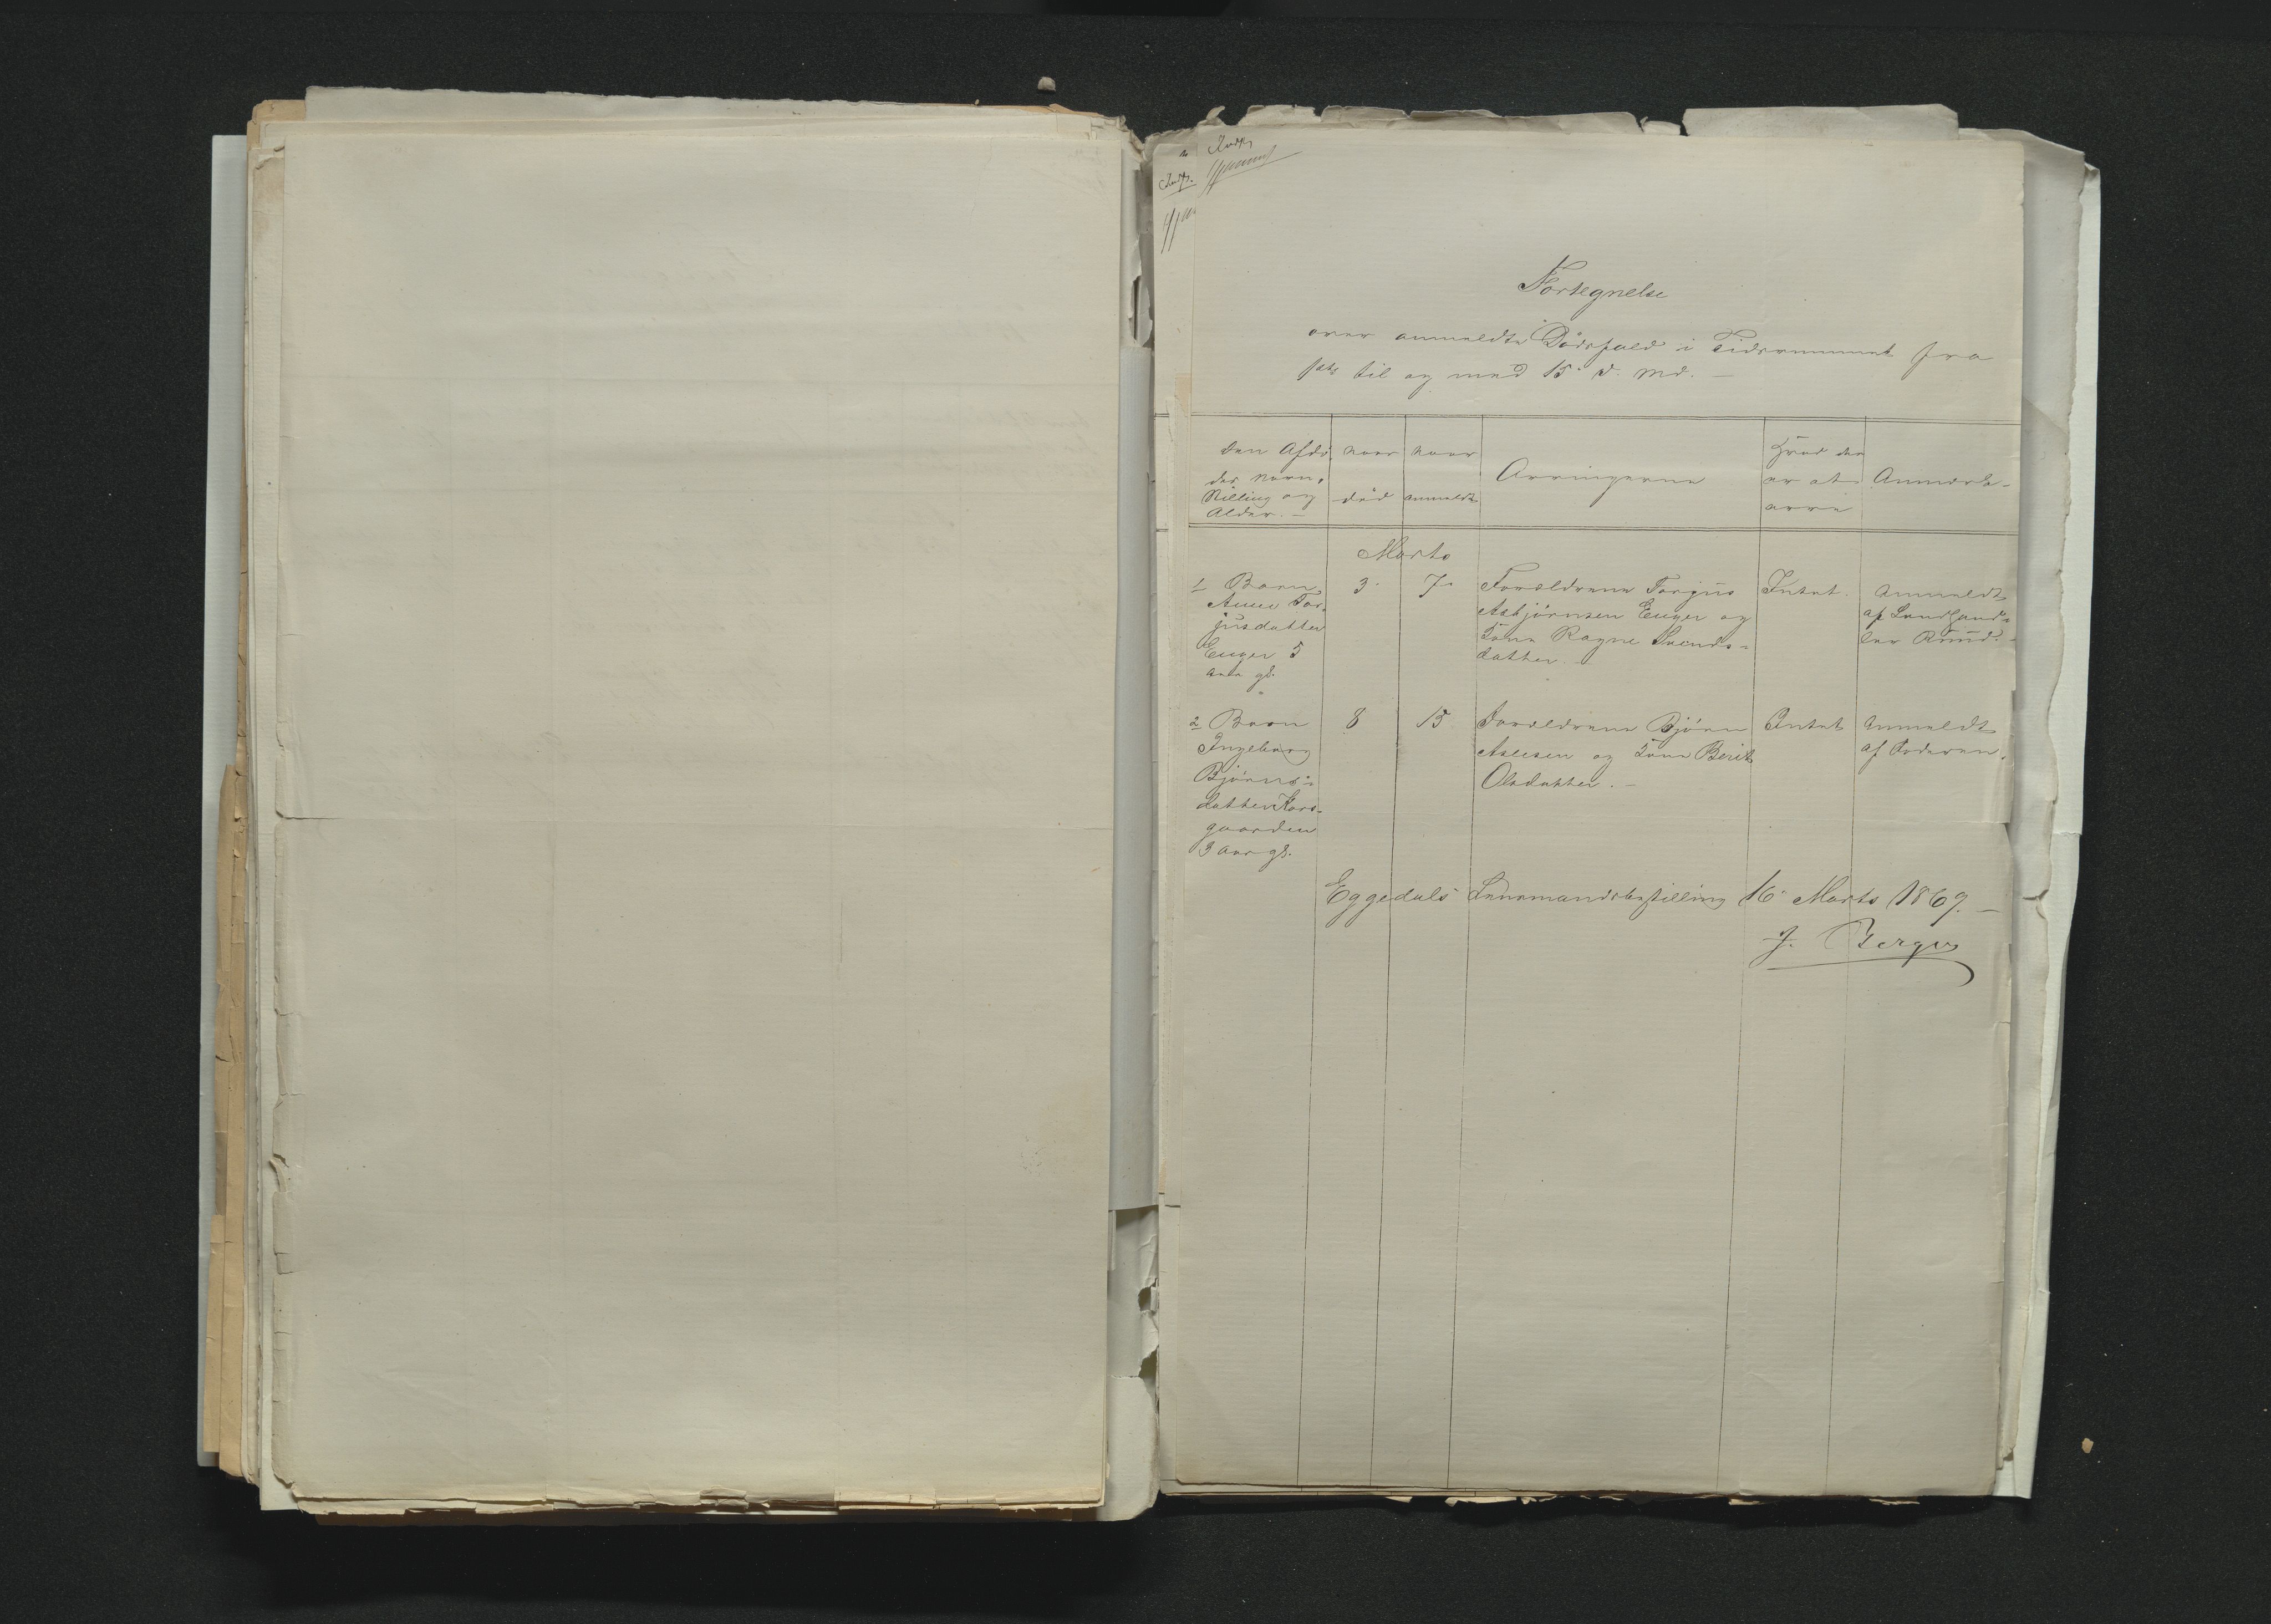 Fortegnelse
over anmeldte Dødsfald i Tidsrummet fra
1ste til og med 15. d. Md. –
Den Afdø-
des Navn,
Stilling og
Alder. –
naar
død
naar
anmeldt
Arvingerne
Hvad der
er at
arve
Anmærk-
Marts
1 Barn
Anne Tor-
jusdatter
Enger 5
Aar gl.
3.
7.
Forældrene Torgus
Asbjørnsen Enger og
Kone Ragne Svends-
datter. –
Intet.
Anmeldt
af Landhand-
ler Ruud. –
2 Barn
Ingeborg
Bjørns-
datter Kors-
gaarden
3 Aar gl.
8
15
Forældrene Bjørn
Aslesen og Kone Berit
Olsdatter. –
Intet
Anmeldt
af Faderen.
Eggedals Lensmandsbestilling 16. Marts 1869. –
J. Berger